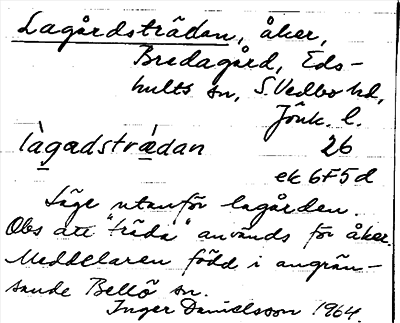 Lagårdsträdan, åker,
Bredagård, Eds-
hults sn, S.Vedbo hd,
Jönk. l.
làgadstrǽdan 26
ek 6F5d
Läge utanför lagården.
Obs att "träda" används för åker.
Meddelaren född i angrän-
sande Bellö sn.
Inger Danielsson 1964.